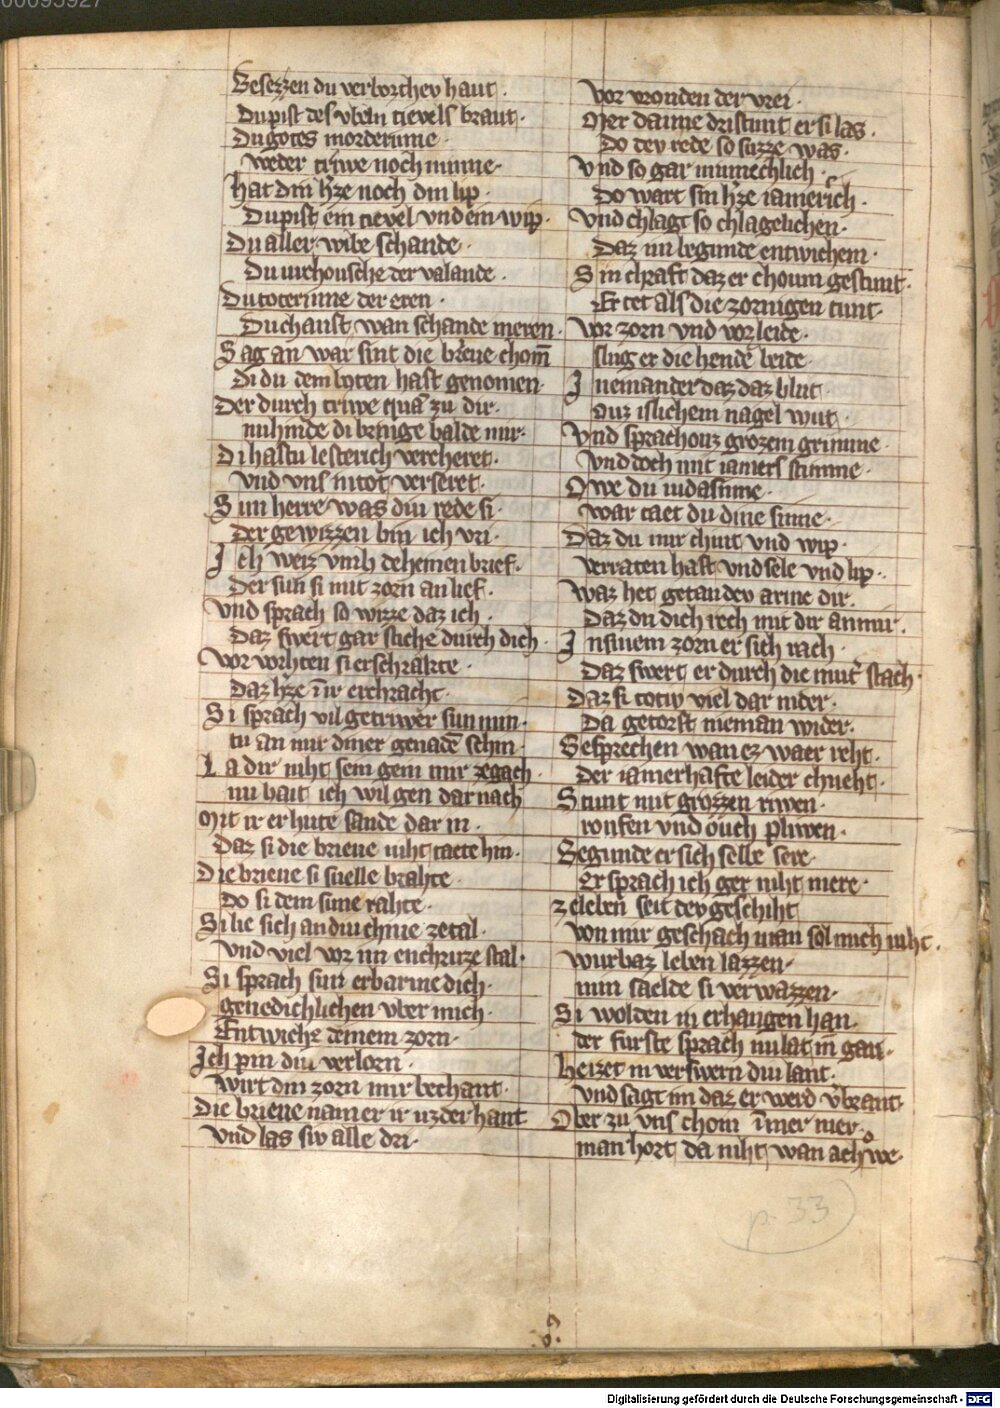 00095927
Besezzen du verworchev haut .
Du pist des vbeln tievels braut .
Du gotes morderinne .
weder triwe noch minne .
hat din hʼze noch din lip .
Du pist ein tievel vnd ein wip .
Du aller wibe schande .
Du vnchousche der valande .
Du toterinne der eren .
Du chanst wan schande meren .
Sag an war sint die brieue chom̄
Di du dem boten hast genomen .
Der durch triwe quā zu dir .
nu hinde di bringe balde mir .
Di hastu lesterich vercheret .
vnd vns in tot verseret .
Sun herre was diu rede si .
der gewizzen bin ich vri .
Ich weiz vmb deheinen brief .
Der sun si mit zorn an lief .
vnd sprach so wizze daz ich .
Daz swert gar stiche durch dich .
Vor vorhten si erschrakte .
daz hʼze in ir erchracht .
Si sprach vil getriwer sun min .
tu an mir diner genadē schin .
La dir niht sein gein mir zegach .
nu bait ich wil gen dar nach
Mit ir er hute sande dar in .
Daz si die brieue niht taete hin .
Die brieue si snelle brahte .
Do si dem sune rahte .
Si lie sich an diu chnie zetal .
vnd viel vor im enchruze stal .
Si sprach sun erbarme dich .
genedichlichen vber mich .
Entwiche deinem zorn .
Ich pin diu verlorn .
wirt din zorn mir bechant .
Die brieue nam er ir uz der hant
vnd las siv alle dri .
vor vronden der vrei .
Mer danne dristunt er si las .
Do dev rede so suzze was .
Vnd so gar minnechlich .
Do wart sin hʼze iamerich .
Vnd chlagt so chlagelichen .
Daz im begunde entwichein .
Sin chraft daz er choum gestunt .
Er tet als die zornigen tunt .
Vor zorn vnd vor leide .
slug er die hende beide .
In einander daz daz blut
ouz islichem nagel wut .
Vnd sprach ouz grozem grimme .
vnd doch mit iamers stimme .
Owe du iudasinne .
war taet du dine sinne .
Daz du mir chint vnd wip .
verraten hast vnd sele vnd lip .
Waz het getan dev arme dir .
Daz du dich rech mit dir an mir .
In sinem zorn er sich rach .
Daz swert er durch die mutʼ stach .
Daz si totiv viel dar nider .
Da getorst nieman wider .
Gesprechen wan ez waer reht .
der iamerhafte leider chneht .
Stunt mit grozzen riwen .
ronfen vnd ouch pliwen .
Begunde er sich selbe sere .
er sprach ich ger niht mere .
zeleben seit dev geschiht
von mir geschach man sol mich niht .
wurbaz leben lazzen .
min saelde si verwazzen .
Si wolden in erhangen han .
der furste sprach nu lat in gan .
heizet in verswern diu lant .
vnd sagt im daz er werd vʼbrant .
Ober zu vns chom īmer mer .
man hort da niht wan ach owe .
p. 33